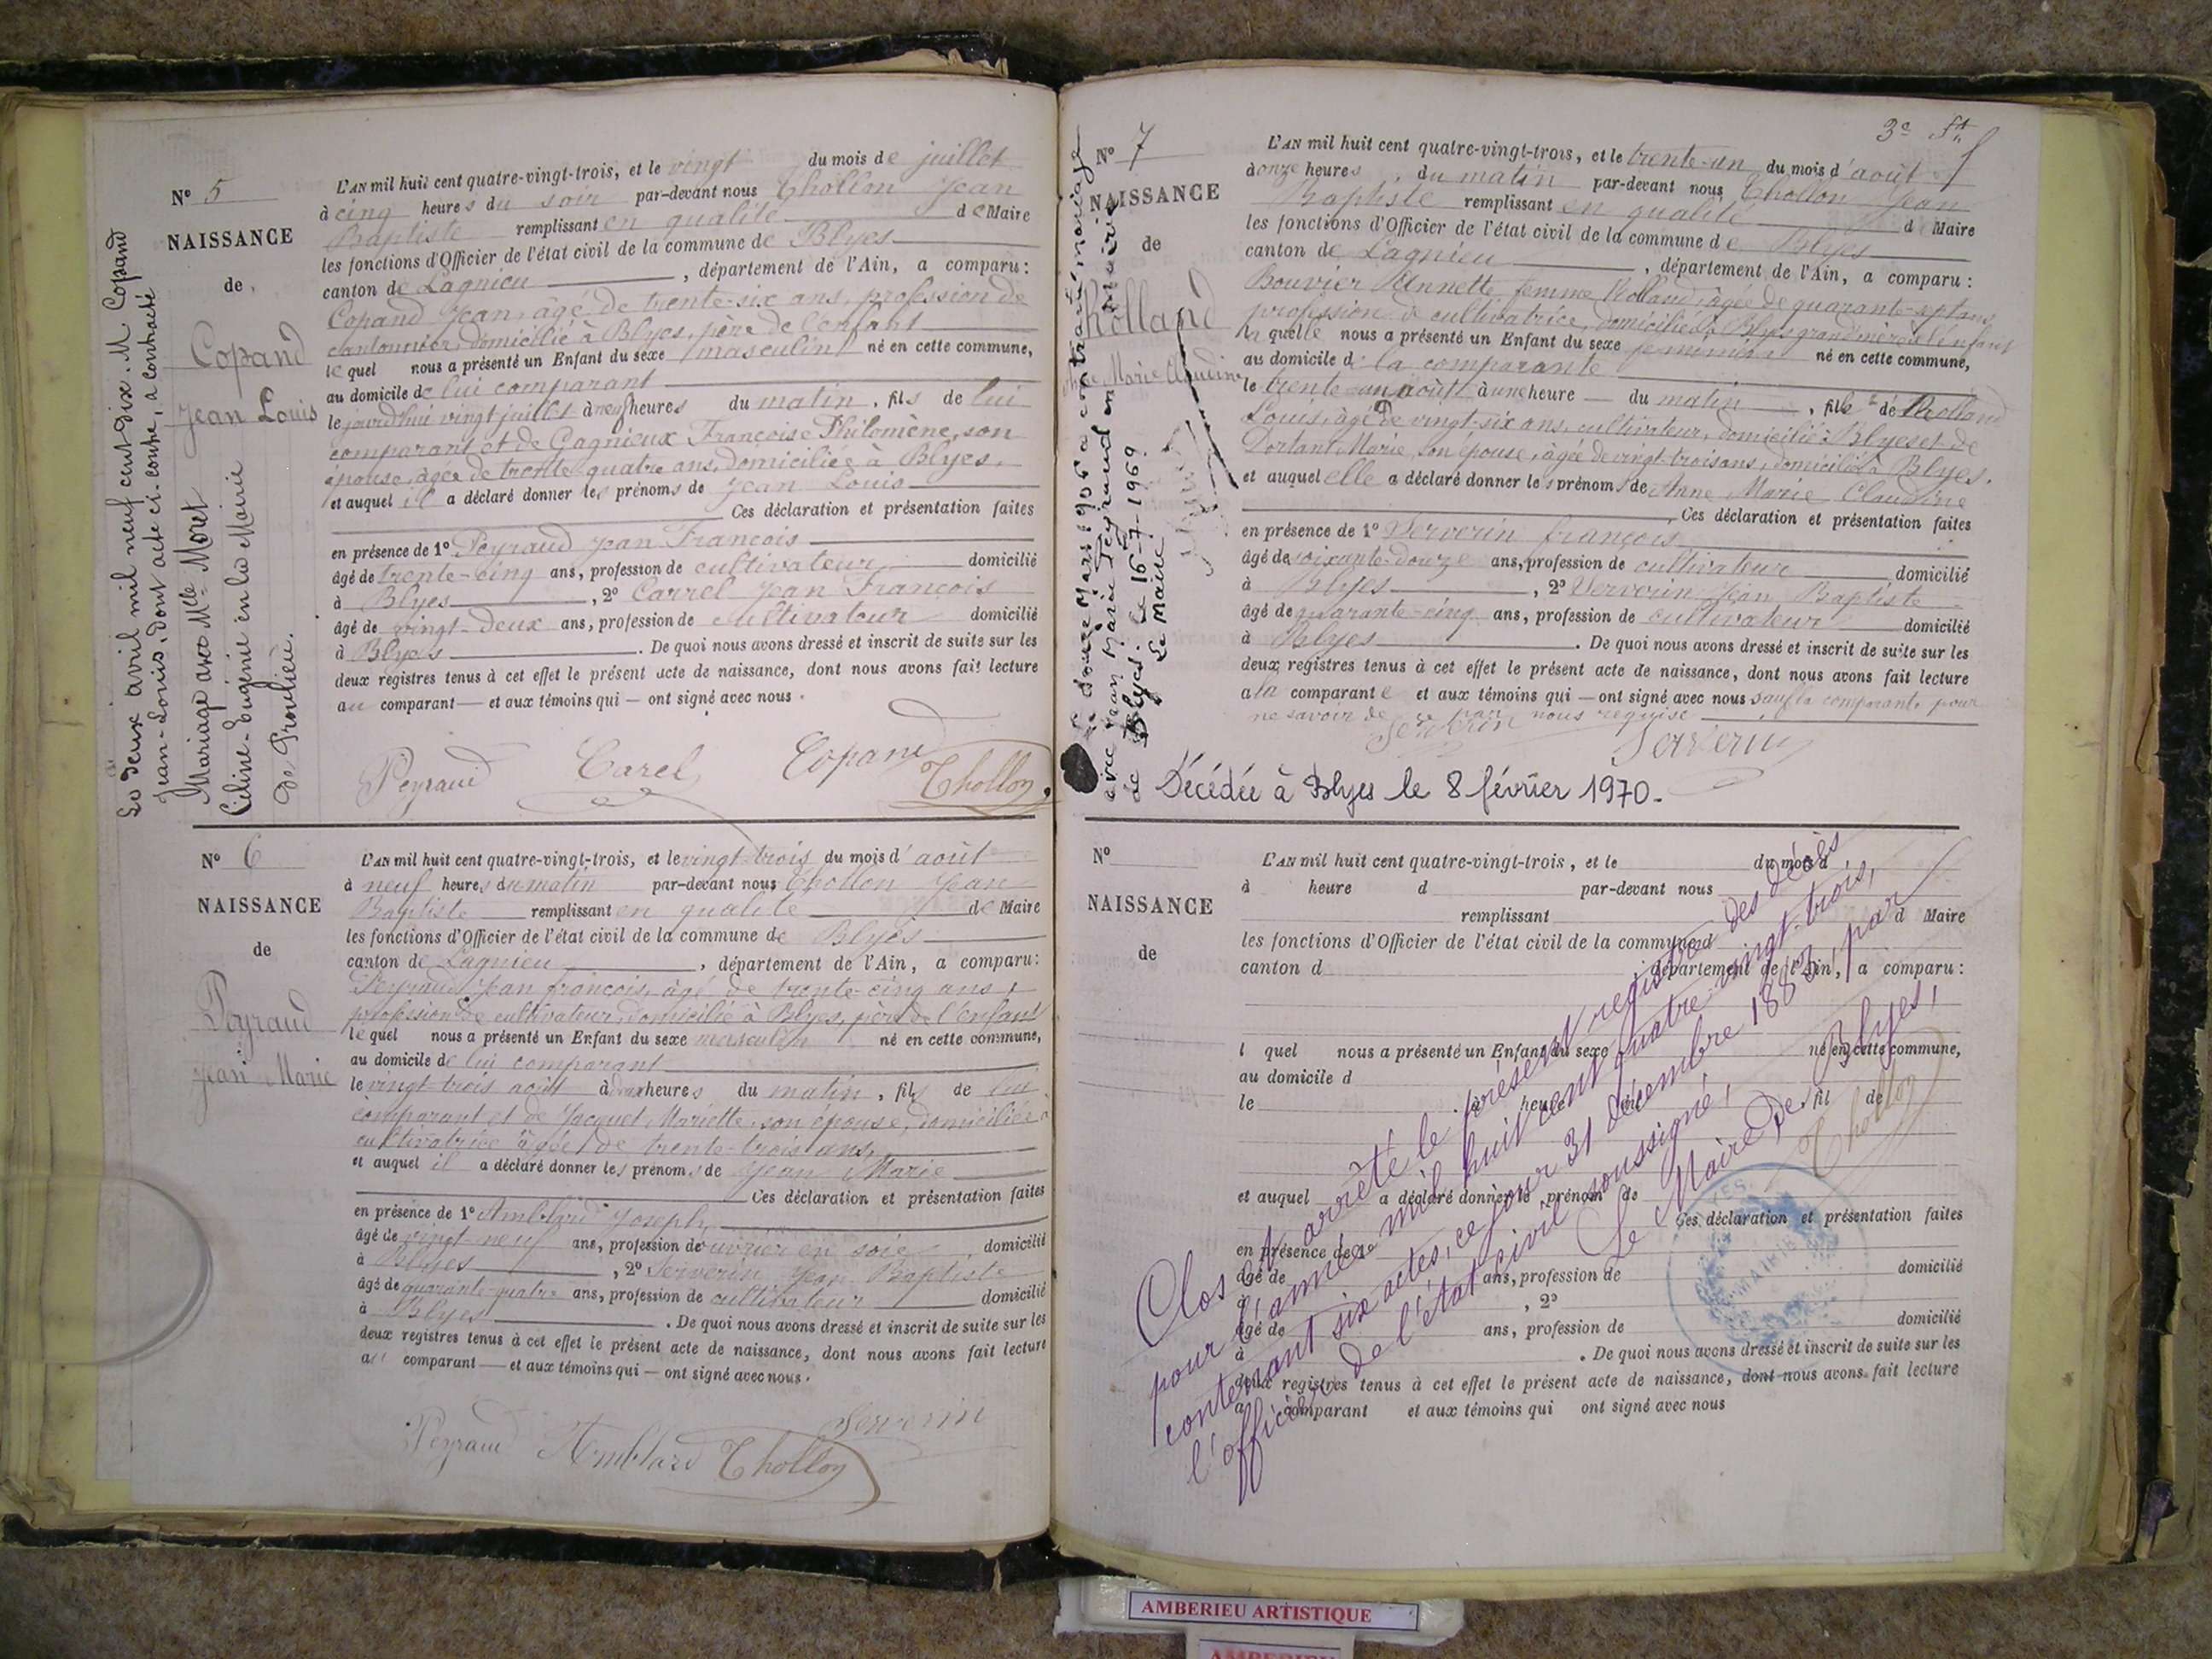 N° 5
NAISSANCE
de
Copand
Jean Louis
Le deux avril mil neuf cent dix. M Copand
Jean-Louis, dont acte ci-contre, a contracté
Mariage avec Mlle Moret
Céline-Eugénie en la Mairie
de Proulieu.
L'AN mil huit cent quatre-vingt-trois, et le vingt du mois de juillet
à cinq heures du soir par-devant nous Thollon Jean
Baptiste remplissant en qualité de Maire
les fonctions d'Officier de l'état civil de la commune de Blyes
canton de Lagnieu, département de l'Ain, a comparu:
Copand Jean, âgé de trente-six ans profession de
cantonnier, domicilié à Blyes, père de l'enfant
lequel nous a présenté un Enfant du sexe masculin né en cette commune,
au domicile de lui comparant
le jourd'hui vingt juillet à neuf heures du matin, fils de lui
comparant et de Gagnieux Françoise Philomène, son
épouse, âgée de trente-quatre ans, domiciliée à Blyes.
et auquel il a déclaré donner les prénoms de Jean Louis
Ces déclaration et présentation faites
en présence de 1° Peyraud Jean François
âgé de trente-cinq ans, profession de cultivateur domicilié
à Blyes, 2° Carrel Jean François
âgé de vingt-deux ans, profession de cultivateur domicilié
à Blyes. De quoi nous avons dressé et inscrit de suite sur les
deux registres tenus à cet effet le présent acte de naissance, dont nous avons fait lecture
au comparant — et aux témoins qui — ont signé avec nous.
Peyraud Carel Copand Thollon
N° 6
NAISSANCE
de
Peyraud
Jean Marie
L'AN mil huit cent quatre-vingt-trois, et le vingt-trois du mois d'août
à neuf heures du matin par-devant nous Thollon Jean
Baptiste remplissant en qualité de Maire
les fonctions d'Officier de l'état civil de la commune de Blyes
canton de Lagnieu, département de l'Ain, a comparu:
Peyraud Jean françois, âgé de trente-cinq ans,
profession de cultivateur, domicilié à Blyes, père de l'enfant
lequel nous a présenté un Enfant du sexe masculin né en cette commune,
au domicile de lui comparant
le vingt trois août à deux heures du matin, fils de lui
comparant et de Jacquet Mariette, son épouse, domiciliée à
cultivatrice âgée de trente-trois ans,
et auquel il a déclaré donner les prénoms de Jean Marie
Ces déclaration et présentation faites
en présence de 1° Amblard Joseph,
âgé de vingt-neuf ans, profession de ouvrier en soie, domicilié
à Blyes, 2° Serverin Jean Baptiste
âgé de quarante-quatre ans, profession de cultivateur domicilié
à Blyes. De quoi nous avons dressé et inscrit de suite sur les
deux registres tenus à cet effet le présent acte de naissance, dont nous avons fait lecture
au comparant — et aux témoins qui — ont signé avec nous.
Serverin
Peyraud Amblard Thollon
3e ft.
N° 7
NAISSANCE
de
Rholland
Anne Marie Claudine
Le douze Mars 1906 a contracté mariage
avec Jean Marie Peyraud en mairie
de Blyes. Le 16-7-1969
Le Maire
L'AN mil huit cent quatre-vingt-trois, et le trente-un du mois d'août
à onze heures du matin par-devant nous Thollon Jean
Baptiste remplissant en qualité d Maire
les fonctions d'Officier de l'état civil de la commune de Blyes
canton de Lagnieu, département de l'Ain, a comparu:
Bouvier Annette femme Rolland, âgée de quarante-sept ans,
profession de cultivatrice, domiciliée à Blyes grand'mère de l'enfant
laquelle nous a présenté un Enfant du sexe féminin né en cette commune,
au domicile de la comparante
le trente-un août à une heure — du matin, fille de Rholland
Louis, âgé de vingt-six ans, cultivateur, domicilié à Blyes et de
Dortant Marie, son épouse, âgée de vingt-trois ans, domiciliée à Blyes.
et auquel elle a déclaré donner les prénoms de Anne Marie Claudine
Ces déclaration et présentation faites
en présence de 1° Serverin françois
âgé de soixante-douze ans, profession de cultivateur domicilié
à Blyes, 2° Serverin Jean Baptiste
âgé de quarante-cinq ans, profession de cultivateur domicilié
à Blyes. De quoi nous avons dressé et inscrit de suite sur les
deux registres tenus à cet effet le présent acte de naissance, dont nous avons fait lecture
a la comparante et aux témoins qui — ont signé avec nous sauf la comparante pour
ne savoir de ce par nous requise
Serverin Serverin
Décédée à Blyes le 8 février 1970.
N°
NAISSANCE
de
L'AN mil huit cent quatre-vingt-trois, et le du mois d
à heure d par-devant nous
remplissant d Maire
les fonctions d'Officier de l'état civil de la commune d
canton d, département de l'Ain, a comparu:
l quel nous a présenté un Enfant du sexe né en cette commune,
au domicile d
le à heure du fil de
et auquel a déclaré donner le prénom de
Ces déclaration et présentation faites
en présence de 1°
âgé de ans, profession de domicilié
à, 2°
âgé de ans, profession de domicilié
à. De quoi nous avons dressé et inscrit de suite sur les
deux registres tenus à cet effet le présent acte de naissance, dont nous avons fait lecture
a comparant et aux témoins qui ont signé avec nous
Clos et arrêté le présent registre des décès
pour l'année mil huit cent quatre-vingt-trois,
contenant six actes, ce jour 31 décembre 1883, par
l'officier de l'état civil soussigné,
Le Maire de Blyes,
Thollon
MAIRIE
AMBERIEU ARTISTIQUE
AMBERIEU